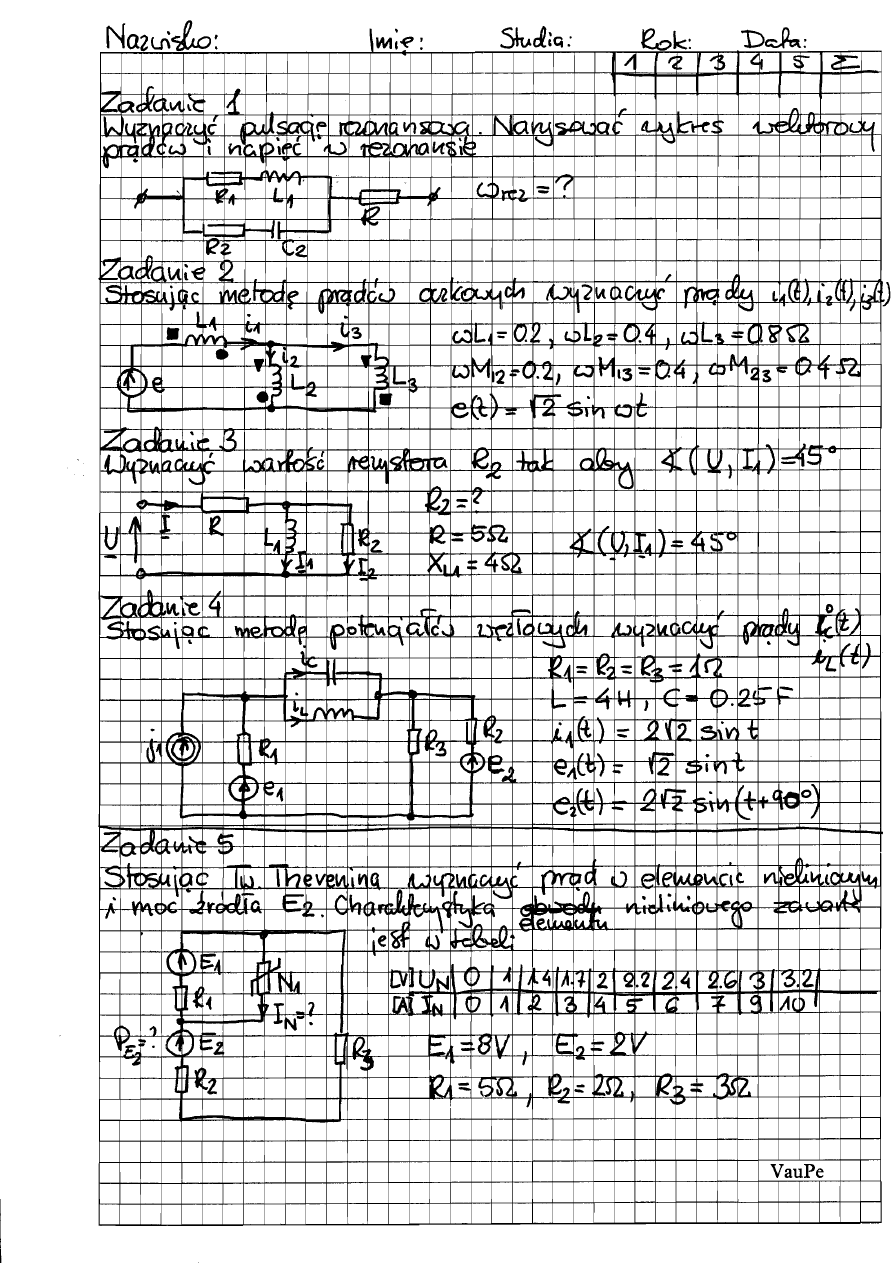 Nazwisko: Imię: Studia: Rok: Data:
1 2 3 4 5 Σ
Zadanie 1
Wyznaczyć pulsację rezonansową. Narysować wykres wektorowy
prądów i napięć w rezonansie
R1 L1
R
R2 C2
ωrez = ?
Zadanie 2
Stosując metodę prądów oczkowych wyznaczyć prądy i1(t), i2(t), i3(t)
L1 i1 i3
i2
e L2 L3
ωL1=0.2, ωL2=0.4, ωL3=0.8Ω
ωM12=0.2, ωM13=0.4, ωM23=0.4Ω
e(t) = √2 sin ωt
Zadanie 3
Wyznaczyć wartość rezystora R2 tak aby ∢(U, I1)=45°
I R
U L1 R2
I1 I2
R2=?
R=5Ω
XL1=4Ω
∢(U,I1)=45°
Zadanie 4
Stosując metodę potencjałów węzłowych wyznaczyć prądy ic(t)
iL(t)
ic
iL
j1 R1 R3 R2
e1 E2
R1=R2=R3=1Ω
L=4H, C=0.25F
i1(t) = 2√2 sin t
e1(t) = √2 sin t
e2(t) = 2√2 sin(t+90°)
Zadanie 5
Stosując Tw. Thevenina wyznaczyć prąd w elemencie nieliniowym
i moc źródła E2. Charakterystyka elementu nieliniowego zawarta
jest w tabeli
E1
N1
R1
IN=?
PE2=? E2
R3
R2
[V] UN 0 1 1.4 1.7 2 2.2 2.4 2.6 3 3.2
[A] IN 0 1 2 3 4 5 6 7 9 10
E1=8V, E2=2V
R1=5Ω, R2=2Ω, R3=3Ω
VauPe